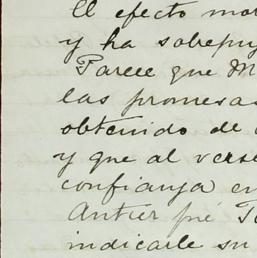 el efecto mor
y ha sobrepuj
Parece que M
las promesas
obtenido de
y que al verse
confianza en
Antier fué
indicarle su